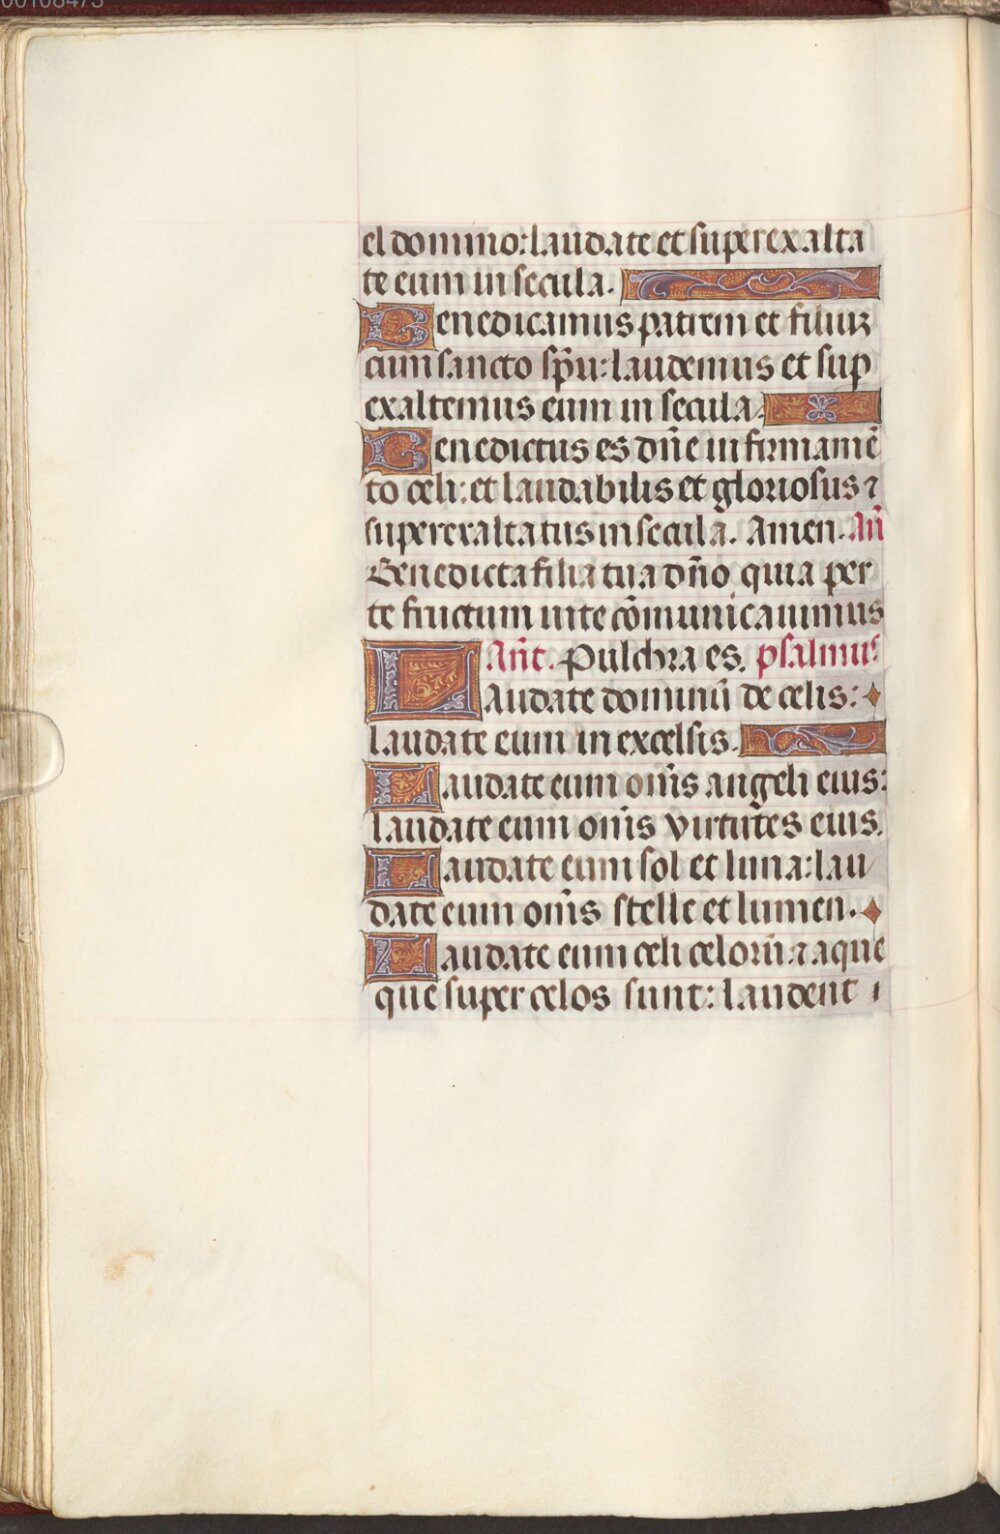 el domino: laudate et superexalta
te eum in secula.
Benedicamus patrem et filiuꝫ
cum sancto sp̄u: laudemus et sup
exaltemus eum in secula.
Benedictus es dn̄e in firmamē
to celi: et laudabilis et gloriosus ⁊
superexaltatus in secula. Amen. An̄
Benedicta filia tua dn̄o quia per
te fructum uite cōmunicauimus
An̄t. Pulchra es. psalmus
Laudate dominū de celis:
laudate eum in excelsis.
Laudate eum om̄s angeli eius:
laudate eum om̄s virtutes eius.
Laudate eum sol et luna: lau
date eum om̄s stelle et lumen.
Laudate eum celi celorū: ⁊ aque
que super celos sunt: laudent